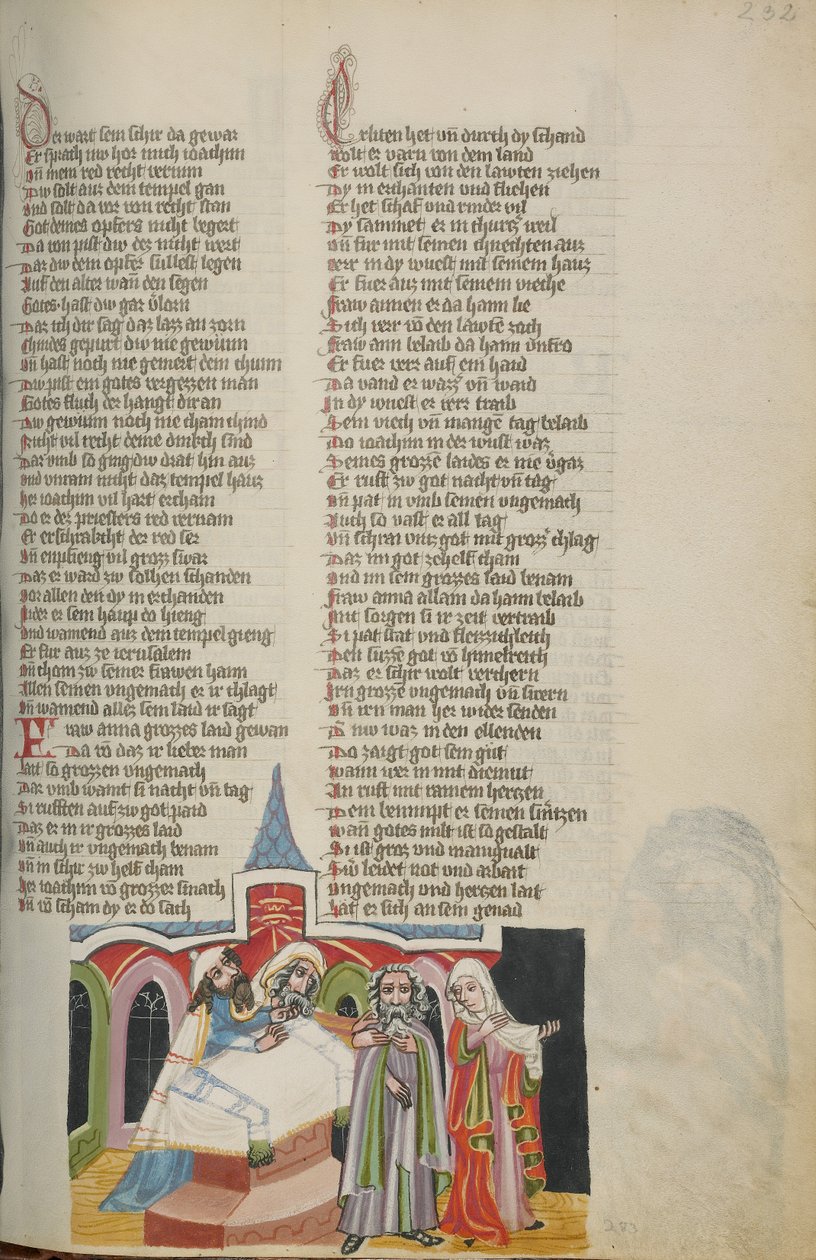 232
Der wart sein schir da gewar
Er sprach nw hor mich ioachim
Vn̄ mein red recht vernim
Dw solt auz dem tempel gan
Vnd solt da vor von recht stan
Got deines opfers nicht begert
Da von pist dw dez nicht wert
Daz dw dem opfer sullest legen
Auf den alter wan̄ den segen
Gotes hast dw gar v̓lorn
Daz ich dir sag daz lazz an zorn
Chindes gepurt dw nie gewūn
Vn̄ hast noch nie gemert dein chunn
Dw pist ein gotes vergezzen man
Gotes fluch der hangt dir an
Dw gewun noch nie cham chind
Nicht vil recht deine dinkch sind
Dar vmb so ging dw drat hin auz
vnd vnraim nicht daz tempel hauz
Her ioachim vil hart ercham
Do er dez priesters red vernam
Er erschrakcht der red ser
Vn̄ enpfieng vil groz swar
Daz er ward zw solhen schanden
Vor allen den dy in erchanden
Nider er sein haup do hieng
Vnd wainend auz dem tempel gieng
Er fur auz ze ierusalem
Vn̄ chom zw seiner frawen haim
Allen seinen vngemach er ir chlagt
Vn̄ wainend allez sein laid ir sagt
Fraw anna grozzes laid gewan
Da vō daz ir lieber man
Lait so grozzen vngemach
Dar vmb waint si nacht vn̄ tag
Si rufften auf zw got paid
Daz er in ir grozzes laid
Vn̄ auch ir vngemach benam
Vn̄ in schir zw helf cham
Her ioachim vō grozzer smach
Vn̄ vō scham dy er do sach
Erliten het vn̄ durch dy schand
wolt er varn von dem land
Er wolt sich von den lawten ziehen
Dy in erchanten vnd fliehen
Er het schaf vnd rinder vil
Dy sammet er in churcz̓ weil
Vn̄ fur mit seinen chnechten auz
verr in dy wuest mit seinem hauz
Er fuer auz mit seinem vieche
Fraw annen er da haim lie
Sich verr vō den lawtē zoch
Fraw ann belaib da haim vnfro
Er fuer verr auf ein haid
Da vand er wazz̓ vn̄ waid
In dy wuest er verr traib
Sein viech vn̄ mangē tag belaib
Do ioachim in der wust waz
Seines grozzē laides er nie v̓gaz
Er ruft zw got nacht vn̄ tag
Vn̄ pat in vmb seinen vngemach
Auch so vast er all tag
Vn̄ schrai vncz got mit groz̓ chlag
Daz im got zehelf cham
Vnd im sein grozzes laid benam
Fraw anna allain da haim belaib
Mit sorgen si ir zeit vertraib
Si pat stat vnd fleizzichleich
Den suzzē got vō himelreich
Daz er schir wolt verchern
Irn grozzē vngemach vn̄ swern
Vn̄ irn man her wider senden
D̓ nw waz in den ellenden
Do zaigt got sein gut
wann wer in mit diemut
An ruft mit rainem herczen
Dem benimpt er seinen sm̓tzen
wan̄ gotes milt ist so gestalt
Si ist groz vnd manigualt
Sw̓ leidet not vnd arbait
Vngemach vnd herczen lait
Lat er sich an sein genad
283